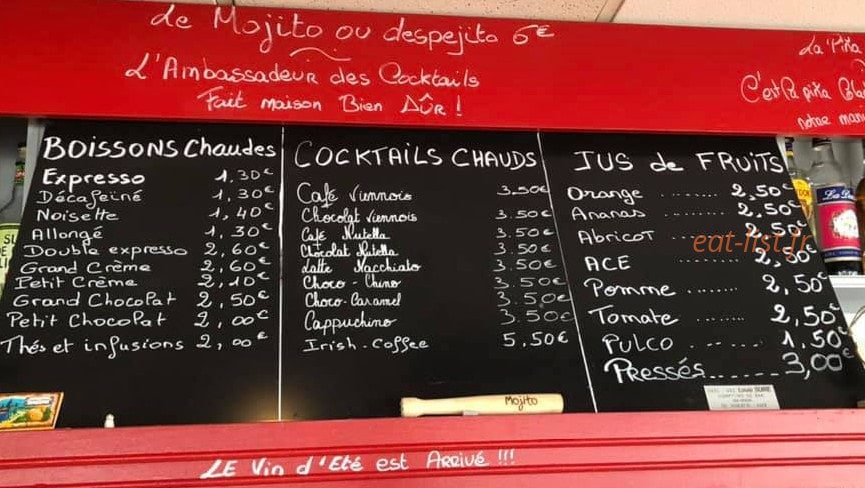 de Mojito ou despejito 6€
L'Ambassadeur des Cocktails
Fait Maison Bien Dûr !
La Piña
C'est la piña Cola
notre man
BOISSONS Chaudes
Expresso 1,30€
Décafeiné 1,30€
Noisette 1,40€
Allongé 1.30€
Double expresso 2,60€
Grand Crème 2,60€
Petit Crème 2,10€
Grand Chocolat 2,50€
Petit Chocolat 2,00€
Thés et infusions 2,00€
COCKTAILS CHAUDS
Café Viennois 3.50€
Chocolat Viennois 3.50€
Café Nutella 3.50€
Chocolat Nutella 3.50€
Latte Macchiato 3.50€
Choco - Chino 3.50€
Choco-Caramel 3.50€
Cappuchino 3.50€
Irish-Coffee 5.50€
JUS de FRUITS
Orange ........ 2,50€
Ananas ........ 2,50€
Abricot ........ 2,50€
ACE 2,50€
Pomme ........ 2,50€
Tomate ........ 2,50€
PULCO ........ 1,50€
PRESSÉS ........ 3,00€
eat-list.fr
Mojito
LE Vin d'Eté est ARRIVÉ !!!